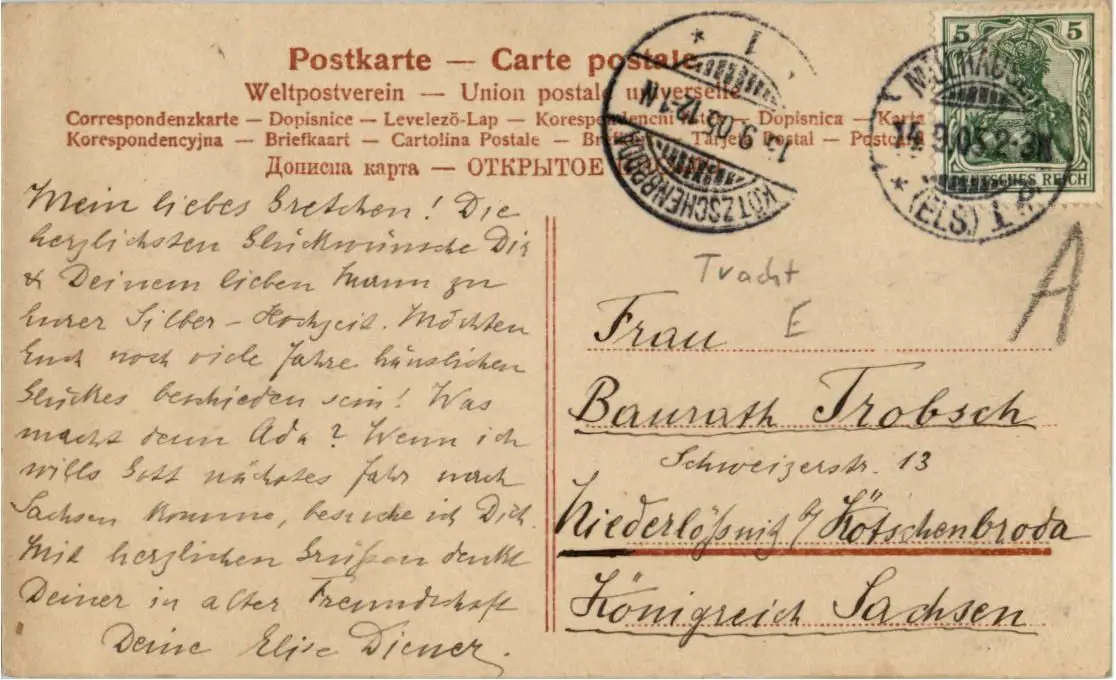 Postkarte — Carte postale
Weltpostverein — Union postale universelle
Correspondenzkarte — Dopisnice — Levelező-Lap — Korespondenční lístek — Dopisnica — Karta
Korespondencyjna — Briefkaart — Cartolina Postale — Brefkort — Tarjeta Postal — Postcard
Дописна карта — ОТКРЫТОЕ
KÖTZSCHENBRODA
15 9 05 12-1 N
* 1
MÜLHAUSEN
14.9.05.2-3N
* (ELS.) 1
5 5
DEUTSCHES REICH
Mein liebes Gretchen! Die
herzlichsten Glückwünsche Dir
& Deinem lieben Mann zu
Eurer Silber-Hochzeit. Möchten
Euch noch viele Jahre häuslichen
Glückes beschieden sein! Was
macht denn Ada? Wenn ich
wills Gott nächstes Jahr nach
Sachsen komme, besuche ich Dich.
Mit herzlichen Grüßen denkt
Deiner in alter Freundschaft
Deine Elise Diener.
Tracht
E
A
Frau
Baurath Trobsch
Schweizerstr. 13
Niederlößnitz b/ Kötschenbroda
Königreich Sachsen